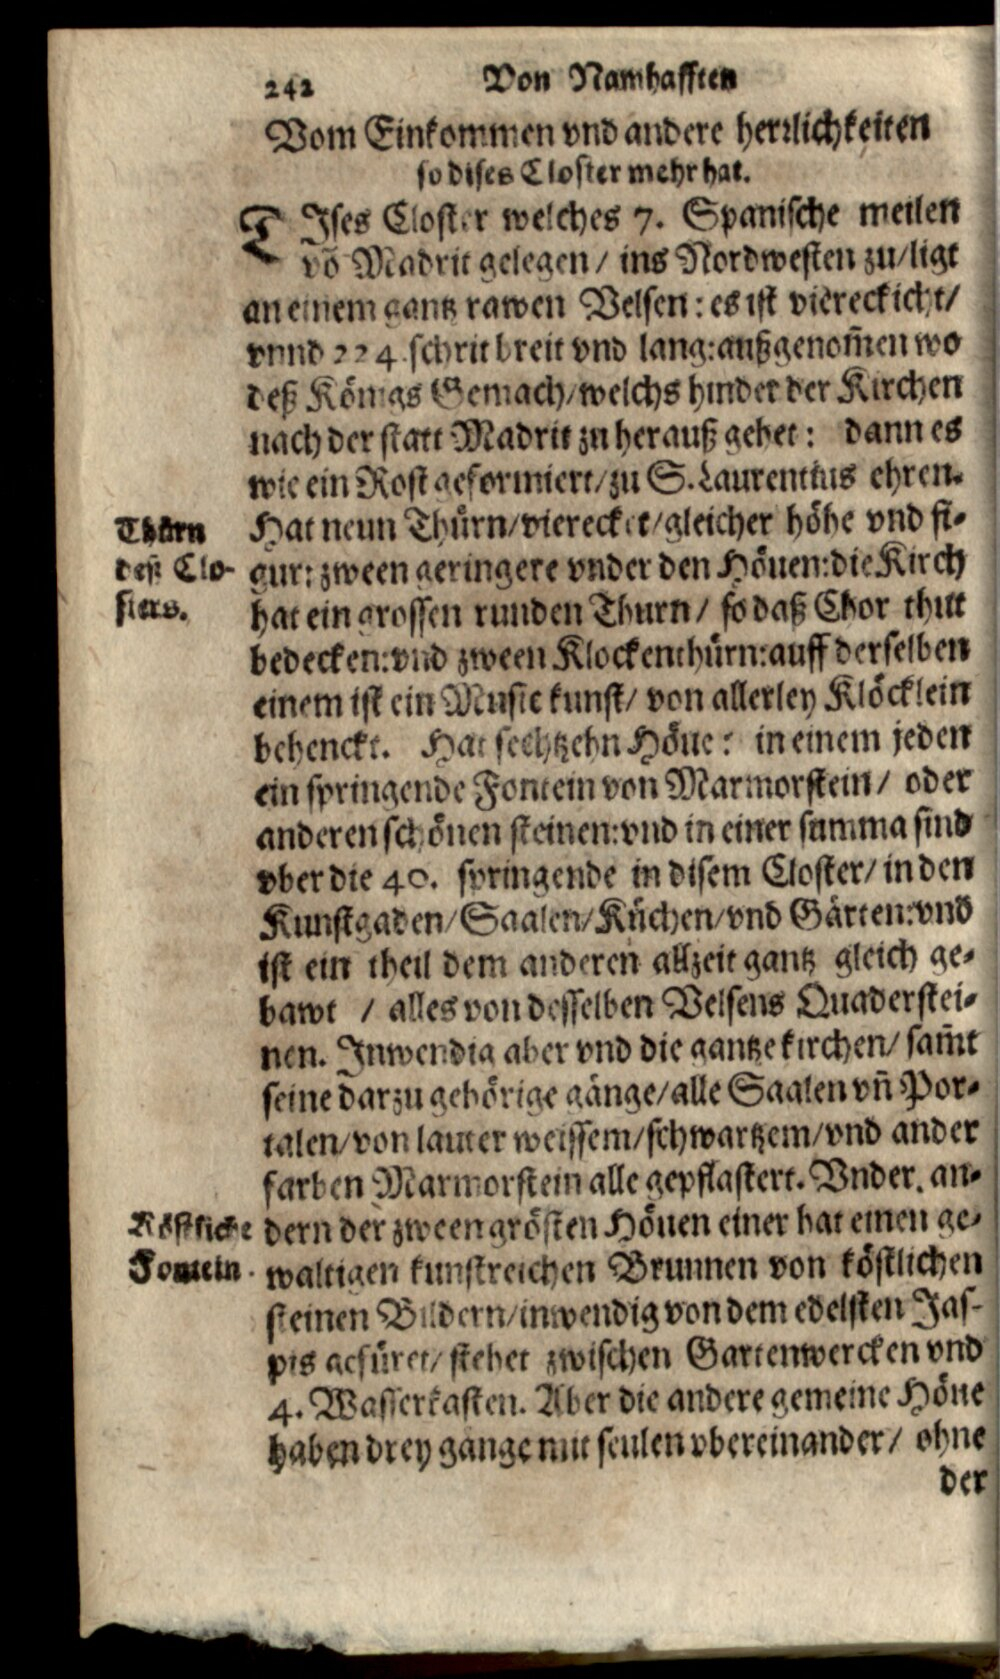 242 Von Namhafften
Vom Einkommen vnd andere herrlichkeiten
so dises Closter mehr hat.
DIses Closter welches 7. Spanische meilen
võ Madrit gelegen / ins Nordwesten zu/ligt
an einem gantz rawen Velsen: es ist viereckicht/
vnnd 224. schrit breit vnd lang: außgenom̃en wo
deß Königs Gemach/welchs hinder der Kirchen
nach der statt Madrit zu herauß gehet: dann es
wie ein Rost geformiert/zu S. Laurentius ehren.
Thürn
deß Clo-
sters.
Hat neun Thürn/viereckit/gleicher höhe vnd fi-
gur: zween geringere vnder den Höuen: die Kirch
hat ein grossen runden Thurn / so daß Chor thut
bedecken: vnd zween Klockenthürn: auff derselben
einem ist ein Music kunst/ von allerley Klöcklein
behenckt. Hat sechtzehn Höue: in einem jeden
ein springende Fontein von Marmorstein / oder
anderen schönen steinen: vnd in einer summa sind
vber die 40. springende in disem Closter/ in den
Kunstgaden/Saalen/Küchen/vnd Gärten: vnd
ist ein theil dem anderen allzeit gantz gleich ge-
bawt / alles von desselben Velsens Quaderstei-
nen. Inwendig aber vnd die gantze kirchen/ sam̃t
seine darzu gehörige gänge/alle Saalen vñ Por-
talen/von lauter weissem/schwartzem/vnd ander
farben Marmorstein alle gepflastert. Vnder. an-
Köstliche
Fontein.
dern der zween grösten Höuen einer hat einen ge-
waltigen kunstreichen Brunnen von köstlichen
steinen Bildern/inwendig von dem edelsten Jas-
pis gefüret/ stehet zwischen Gartenwercken vnd
4. Wasserkasten. Aber die andere gemeine Höue
haben drey gänge mit seulen vbereinander/ ohne
der